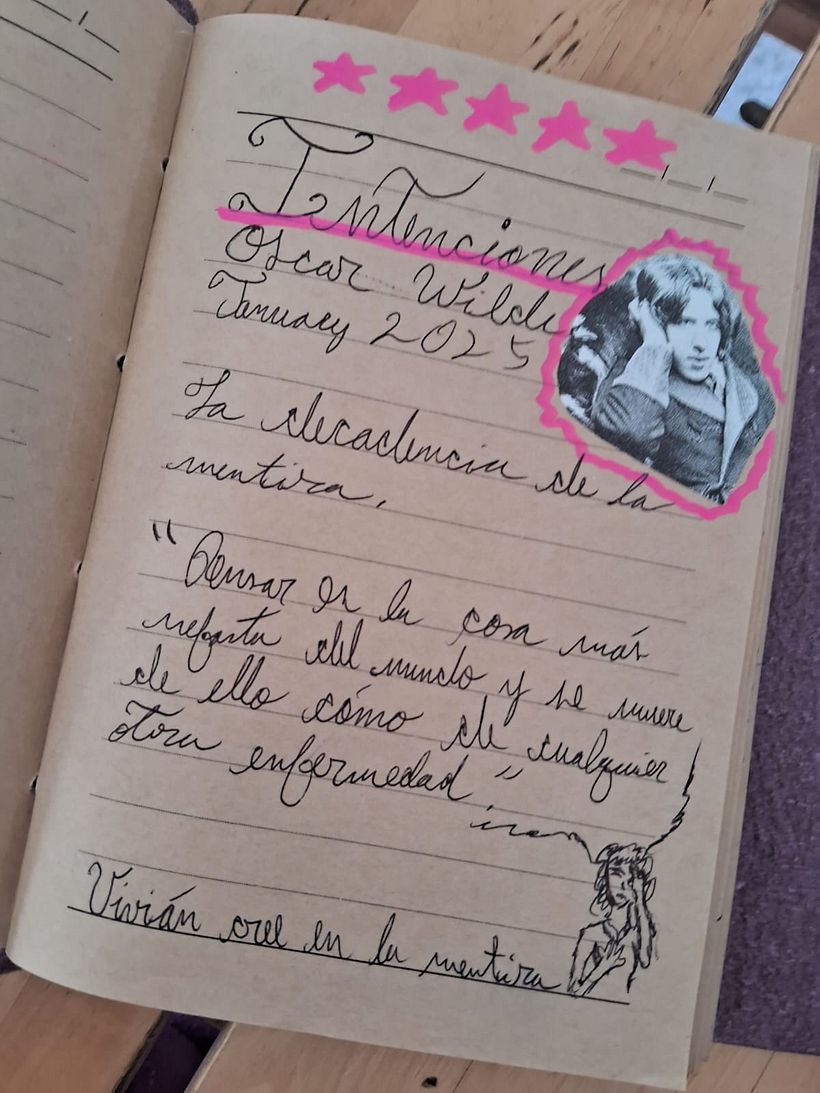 Intenciones
Oscar Wilde
January 2025
La decadencia de la
mentira.
"Pensar es la cosa más
nefasta del mundo y se muere
de ello cómo de cualquier
otra enfermedad"
Vivián cree en la mentira